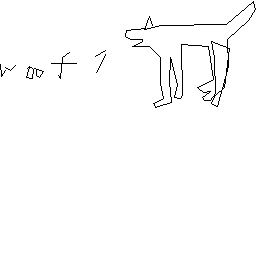 woof !